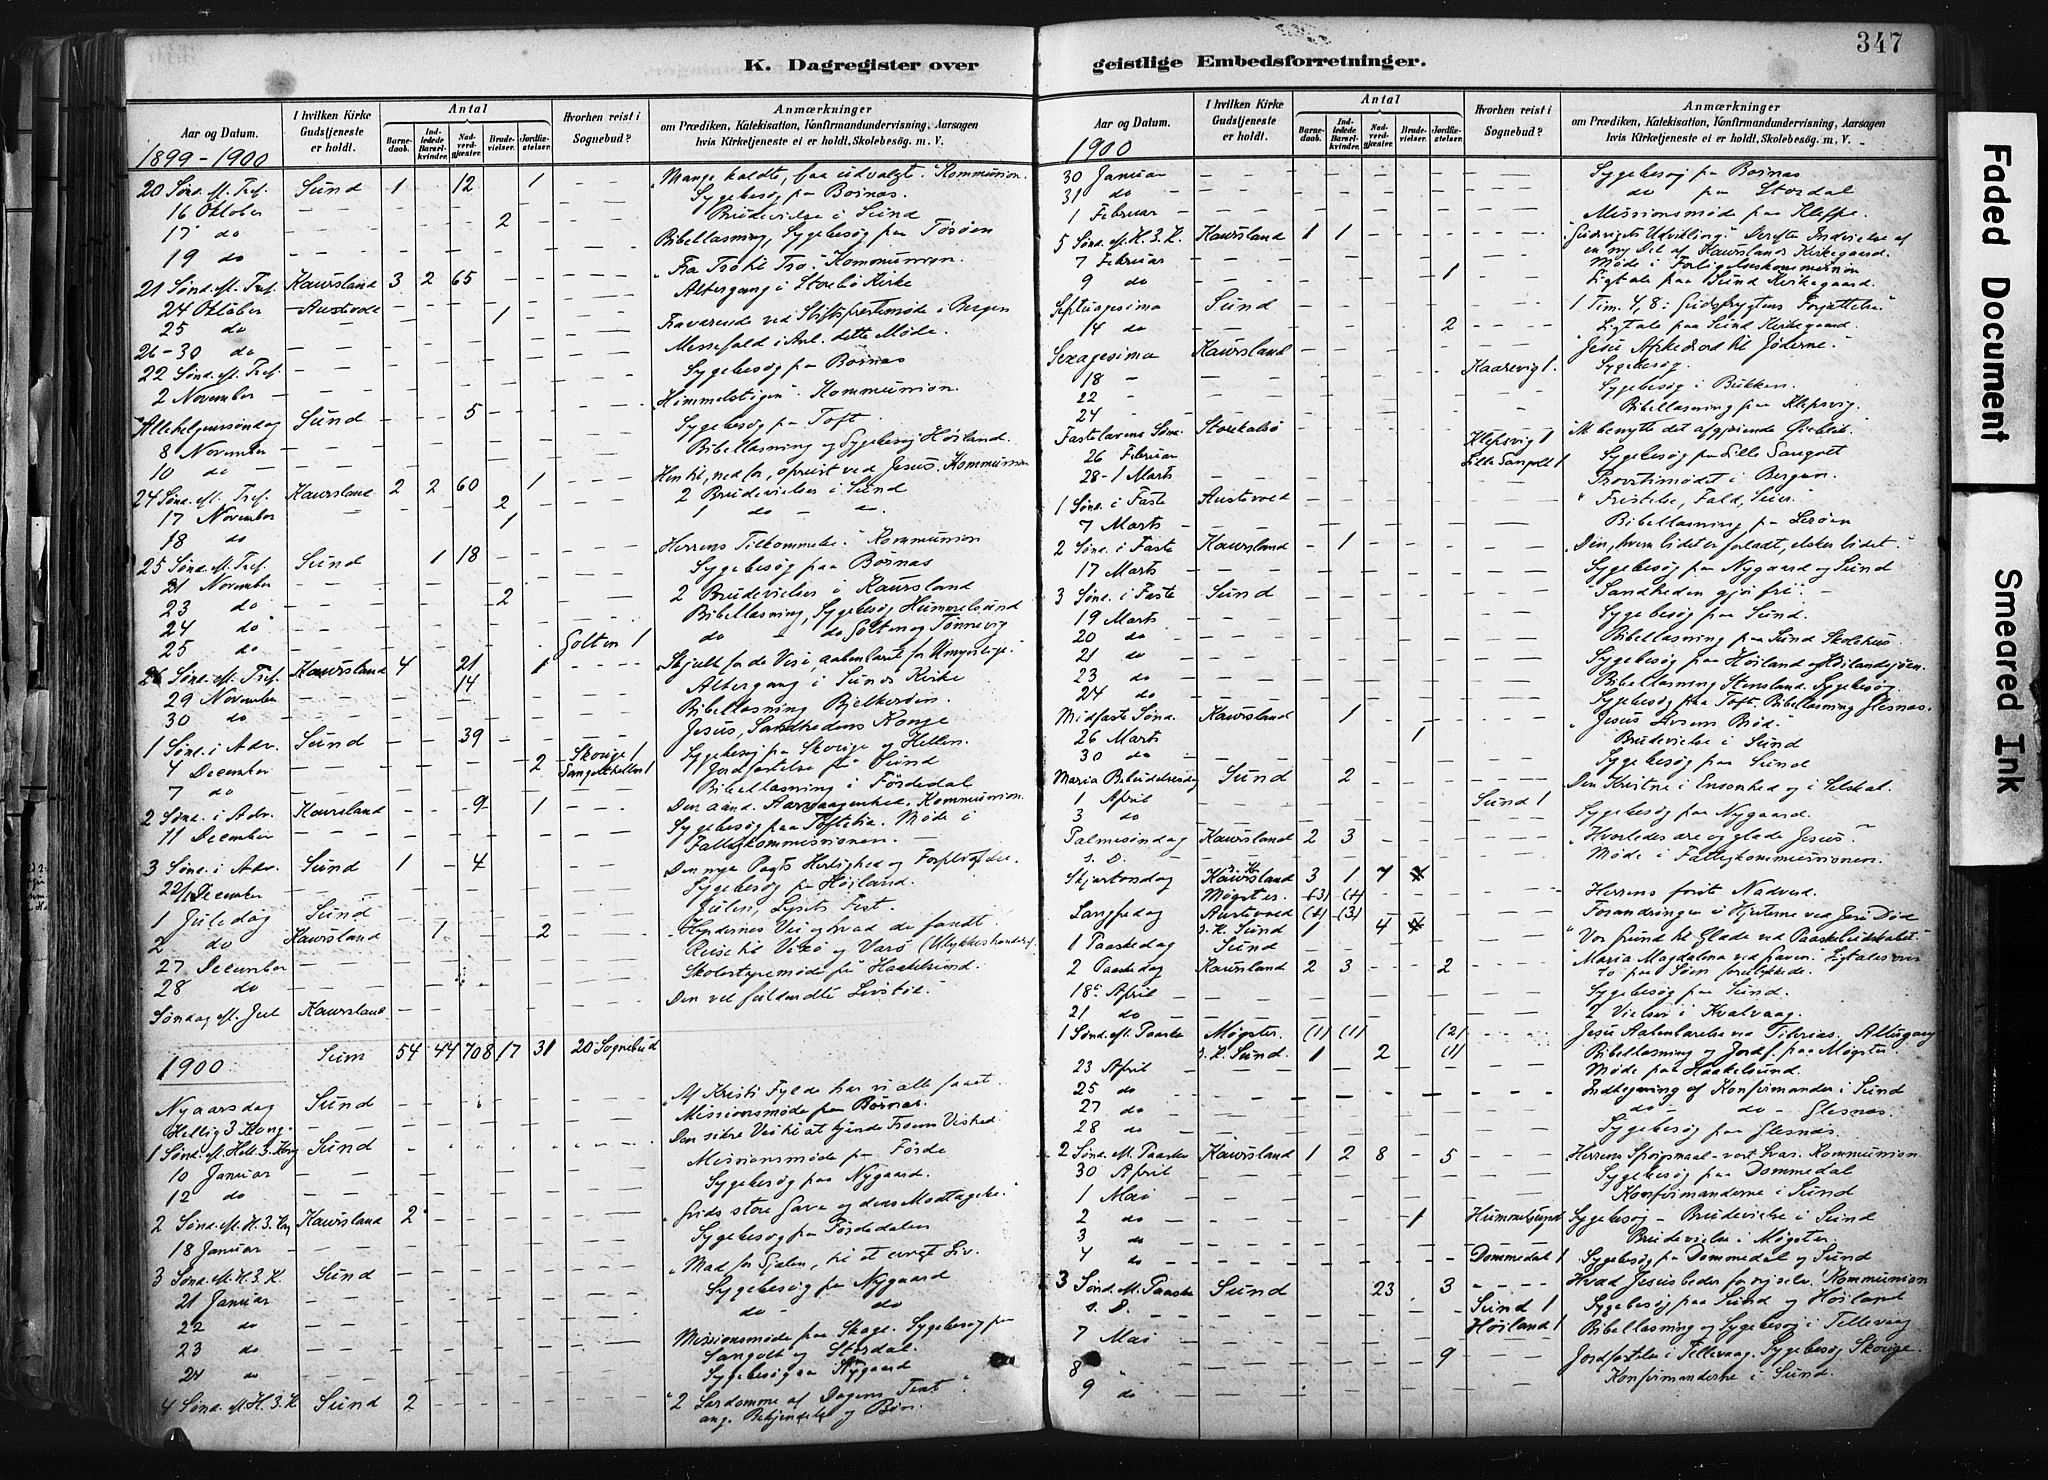 347
K. Dagregister over
geistlige Embedsforretninger.
Faded Document
Smeared Ink
Aar og Datum.
I hvilken Kirke Gudstjeneste er holdt.
Antal
Barnedaab.
Indledede Barselkvinder.
Nadverdgjæster.
Brudevielser.
Jordfæstelser.
Hvorhen reist i Sognebud?
Anmærkninger
om Prædiken, Katekisation, Konfirmandundervisning, Aarsagen
hvis Kirketjeneste ei er holdt, Skolebesøg. m. V.
1899-1900
20 Sønd. e. Tref. Sund 1 - 12 - 1 "Mange kaldte, faa udvalgte. Kommunion.
16 Oktober Sygebesøg paa Boinas.
17 do 2 Brudevielse i Sund
19 do Bibellæsning, Sygebesøg paa
21 Sønd. e. Tref. Kaursland 3 2 65 "Fra Tro til Tro". Kommunion.
24 Oktober Austevold Altergang i Storebø Kirke
25 do 1
26-30 do Fraværende ved Stiftsprestemøde i Bergen
22 Sønd. e. Tref. Messefald i Anl. dette Møde.
2 November Sygebesøg paa Boinas
Allehelgenssøndag Sund 5 "Himmelstigen" Kommunion.
8 November Sygebesøg paa Toft.
10 do Bibellæsning og Sygebesøg Høiland.
24 Sønd. e. Tref. Kaursland 2 2 60 - 1 Hen til, ned for, opreist ved Jesus. Kommunion
17 November 2 2 Brudevielser i Sund
18 do 1 1 do - do.
25 Sønd. e. Tref. Sund 1 18 Herrens Tilkommelse. Kommunion
21 November Sygebesøg paa Børnas
23 do 2 2 Brudevielser i Kaursland
24 do Bibellæsning, Sygebesøg Hummelsund
25 do Golten 1 do - do Golten og Tønnevig
26 Sønd. e. Tref. Kaursland 4 21 1 Skjult for de Vise, aabenbaret for Umyndige.
29 November 14 Altergang i Sunds Kirke
30 do Bibellæsning
1 Sønd. i Adv. Sund 39 Jesus, Sandhedens Konge
4 December 2 Skouge 1 Sygebesøg paa Skouge og Hellen.
7 do 1 Jordfæstelse paa Sund
Bibellæsning i Fördedal
2 Sønd. i Adv. Kaursland 9 1 Kommunion.
11 December Sygebesøg paa Møde i
Fattigkommissionen.
3 Sønd. i Adv. Sund 1 4 Den nye Pagts Herlighed og
22/ December Sygebesøg paa Høiland.
1 Juledag Sund Julen, Lysets Fest.
2 do Kaursland 1 2 "Hyrdernes Vei og hvad de fandt".
27 December Reise til Vixø og Varø
28 do Skolestyremøde paa Haakelsund.
Søndag e. Jul Kaursland Den vel fuldendte Livsløb."
Sum 54 44 708 17 31 20 Sognebud
1900
Nyaarsdag Sund "Af Kristi Fylde har vi alle faaet.
Hellig 3 Kong. Missionsmøde paa Børnas.
1 Sønd. e. Hell. 3. Kong Sund Den sikre Vei til at finde
10 Januar Missionsmøde paa Förde
12 do Sygebesøg paa Nygaard.
2 Sønd. e. H. 3. Kg Kaursland 2 "Guds store Gave og dens Modtagelse."
18 Januar Sygebesøg paa Fördedalen
3 Sønd. e. H. 3. K. Sund "Mad for Sjælen, til et evigt Liv.
21 Januar Sygebesøg paa Nygaard
22 do do - do
23 do Missionsmøde paa Skage. Sygebesøg paa
Sangolt og Stordal.
24 do Sygebesøg paa Nygaard
4 Sønd. e. H. 3. K Sund 2 "2 Lærdomme af Dagens Text"
ang. Bekjendelse og Bøn.
Aar og Datum.
I hvilken Kirke Gudstjeneste er holdt.
Antal
Barnedaab.
Indledede Barselkvinder.
Nadverdgjæster.
Brudevielser.
Jordfæstelser.
Hvorhen reist i Sognebud?
Anmærkninger
om Prædiken, Katekisation, Konfirmandundervisning, Aarsagen
hvis Kirketjeneste ei er holdt, Skolebesøg. m. V.
1900
30 Januar Sygebesøg paa Boinas
31 do do paa Stordal
1 Februar Missionsmøde paa Kleppe.
5 Sønd. e. H. 3. K. Kaursland 1 1 "Gudsrigets Udvikling". Derefter Indvielse af
en ny Del af Kaurslands Kirkegaard.
7 Februar Møde i Forligelseskommissionen
9 do 1 Ligtale paa Sund Kirkegaard.
Septuagesima Sund 1 Tim. 4,8: Gudsfrygtens Forjættelse."
14 do 2 Ligtale paa Sund Kirkegaard.
Sexagesima Kaursland "Jesu Afskedsord til Jøderne."
18 - Kaarevig 1. Sygebesøg.
22 - Sygebesøg i Bukken.
24 - Bibellæsning paa Klepsvig.
Fastelavens Sønd. Storekalsø "At benytte det afgjørende Øieblik.
26 Februar Klepsvig 1
28-1 Marts Lille Sangolt 1 Sygebesøg paa Lille Sangolt
Provstimødet i Bergen.
1 Sønd. i Faste Austevold "Fristelse, Fald, Seier."
7 Marts Bibellæsning paa Lerøen
2 Sønd. i Faste Kaursland 1 "Den, hvem lidet er forladt, elsker lidet."
17 Marts Sygebesøg paa Nygaard og Sund
3 Sønd. i Faste Sund "Sandheden gjør fri".
19 Marts Sygebesøg paa Sund.
20 do Bibellæsning paa Sund Skolehus.
21 do Sygebesøg paa Høiland og Høilandsjøen.
23 do Bibellæsning Stensland. Sygebesøg
24 do Sygebesøg paa Toft. Bibellæsning Glesnæs.
Midfaste Sønd. Kaursland 1 "Jesus Livsens Brød."
26 Marts 1 Brudevielse i Sund
30 do Sygebesøg paa Sund
Maria Bebudelsesdag Sund 2 Den Kristne i Ensomhed og i Selskab.
1 April Sund 1
3 do Sygebesøg paa Nygaard.
Palmesøndag Kaursland 2 3 "Hvorledes ære og glæde Jesus"
s. D. Møde i Fattigkommissionen.
Skjærtorsdag Kaursland 3 1 7
Møgster (3) (4) Herrens første Nadverd.
Langfredag Austevold (4) (3) Forandringen i Hjerterne ved Jesu Død
s. K. Sund 1 4
1 Paaskedag Sund "Vor Grund til Glæde ved Paaskebudskabet."
2 Paaskedag Kaursland 2 3 2 Maria Magdalena ved Graven. Ligtales over
to paa Søen forulykkede.
18 April Sygebesøg paa Sund.
21 do 2 Vielser i Kvalvaag.
1 Sønd. e. Paaske Møgster (1) (1) (2) Jesu Aabenbarelse ved Tiberias. Altergang
s. K. Sund. 1 2 (1) Bibellæsning og Jordf. paa Møgster.
23 April Møde paa Haakelsund.
25 do Indtegning af Konfirmander i Sund
27 do do - do - Glesnæs.
28 do Sygebesøg paa Glesnæs.
2 Sønd. e. Paaske Kaursland 1 2 8 - 5 Herrens Spørgsmaal - vort Svar. Kommunion
30 April Sygebesøg paa Dommedal
1 Mai Konfirmanderne i Sund
2 do 1 Hummelsund Sygebesøg - Brudevielse i Sund
3 do Brudevielse i Møgster
4 do Dommedal 1 Sygebesøg paa Dommedal og Sund
3 Sønd. e. Paaske Sund 23 3 Hvad Jesus beder for og selv. Kommunion
s. D. Sund 1 Sygebesøg paa Sund og Høiland
7 Mai Høiland 1 Bibellæsning og Sygebesøg i Tellevaag
8 " 9 Jordfæstelse i Tellevaag. Sygebesøg Skouge.
9 do Konfirmanderne i Sund.